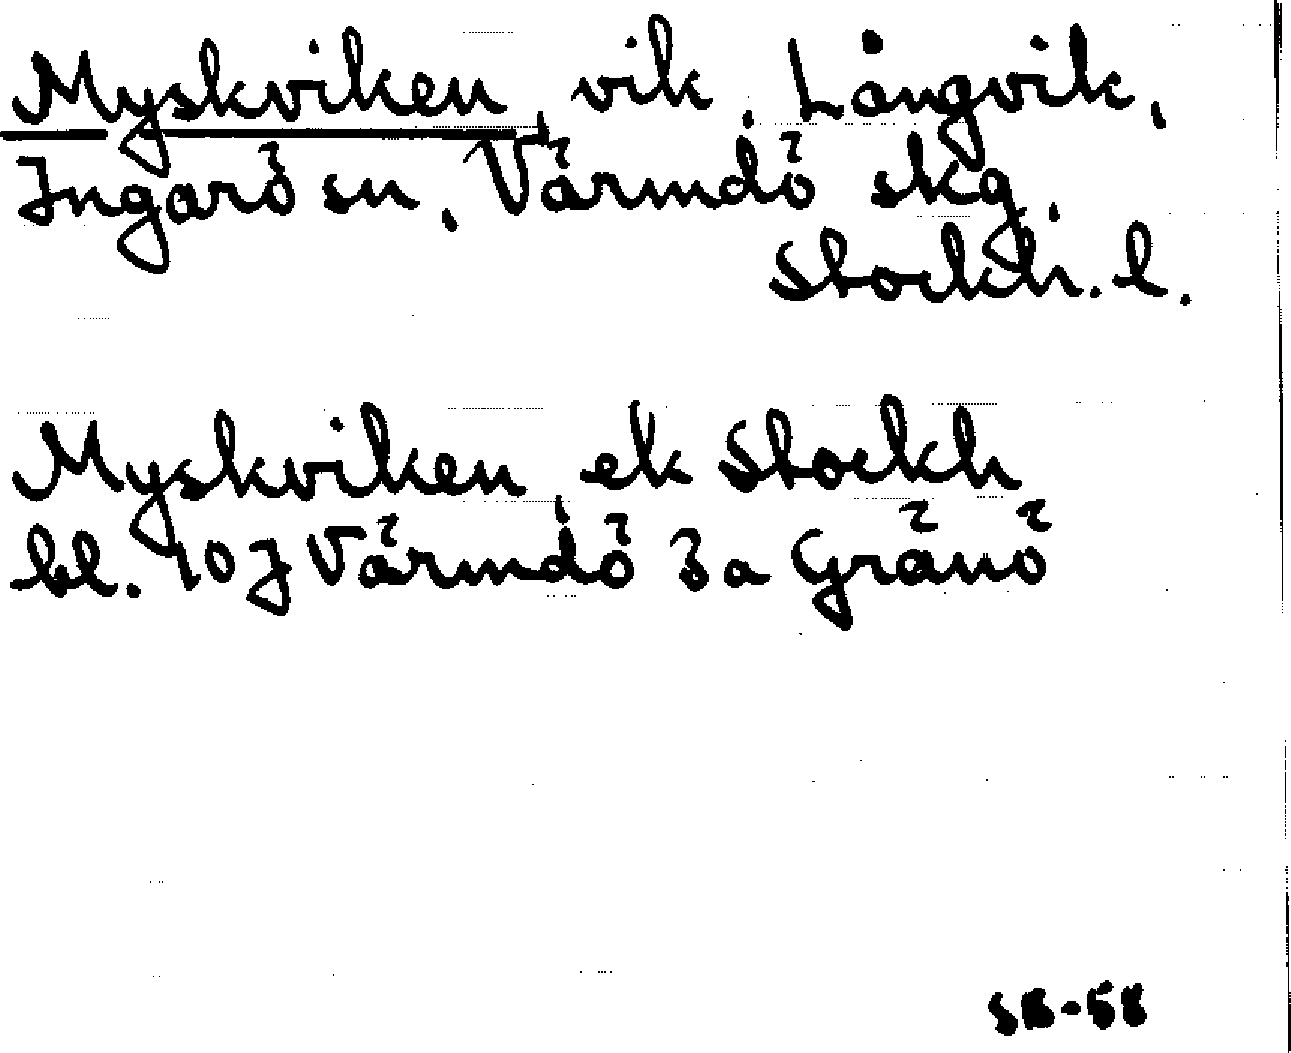 Myskviken, vik, Långvik,
Ingarö sn, Värmdö skg,
Stockh. l.
Myskviken, ek Stockh
bl. 10J Värmdö 3a Gränö
SB-58